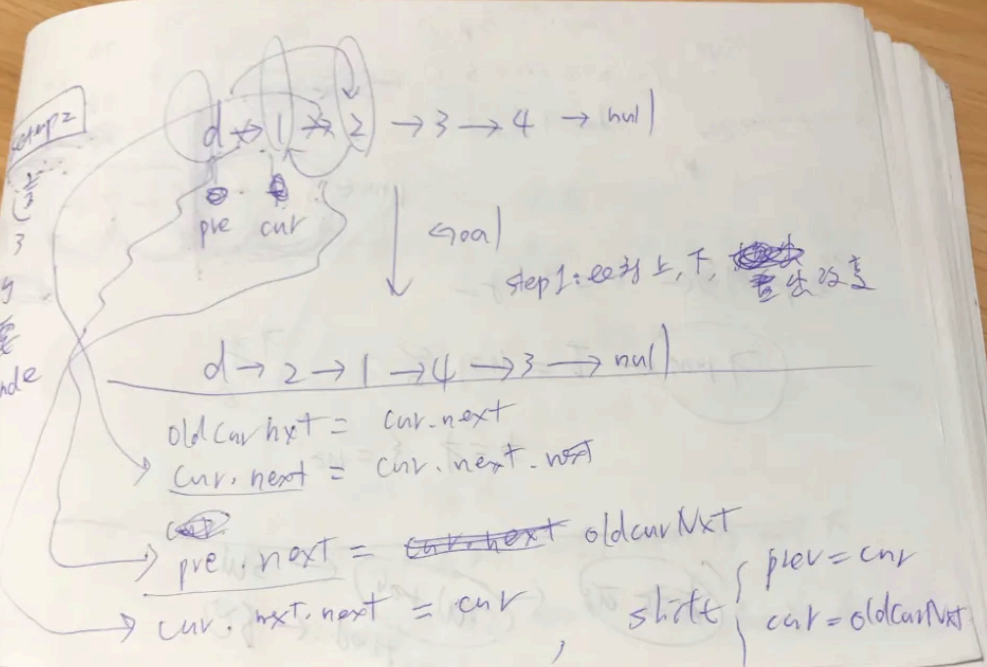 d → 1 → 2 → 3 → 4 → null
pre cur
Goal
step1: 上, 下, 改变
d → 2 → 1 → 4 → 3 → null
oldcurnxt = cur.next
cur.next = cur.next.next
pre.next = oldcurNxt
cur.nxt.next = cur
,
shift { prev = cur
cur = oldcurNxt
3
y
nde